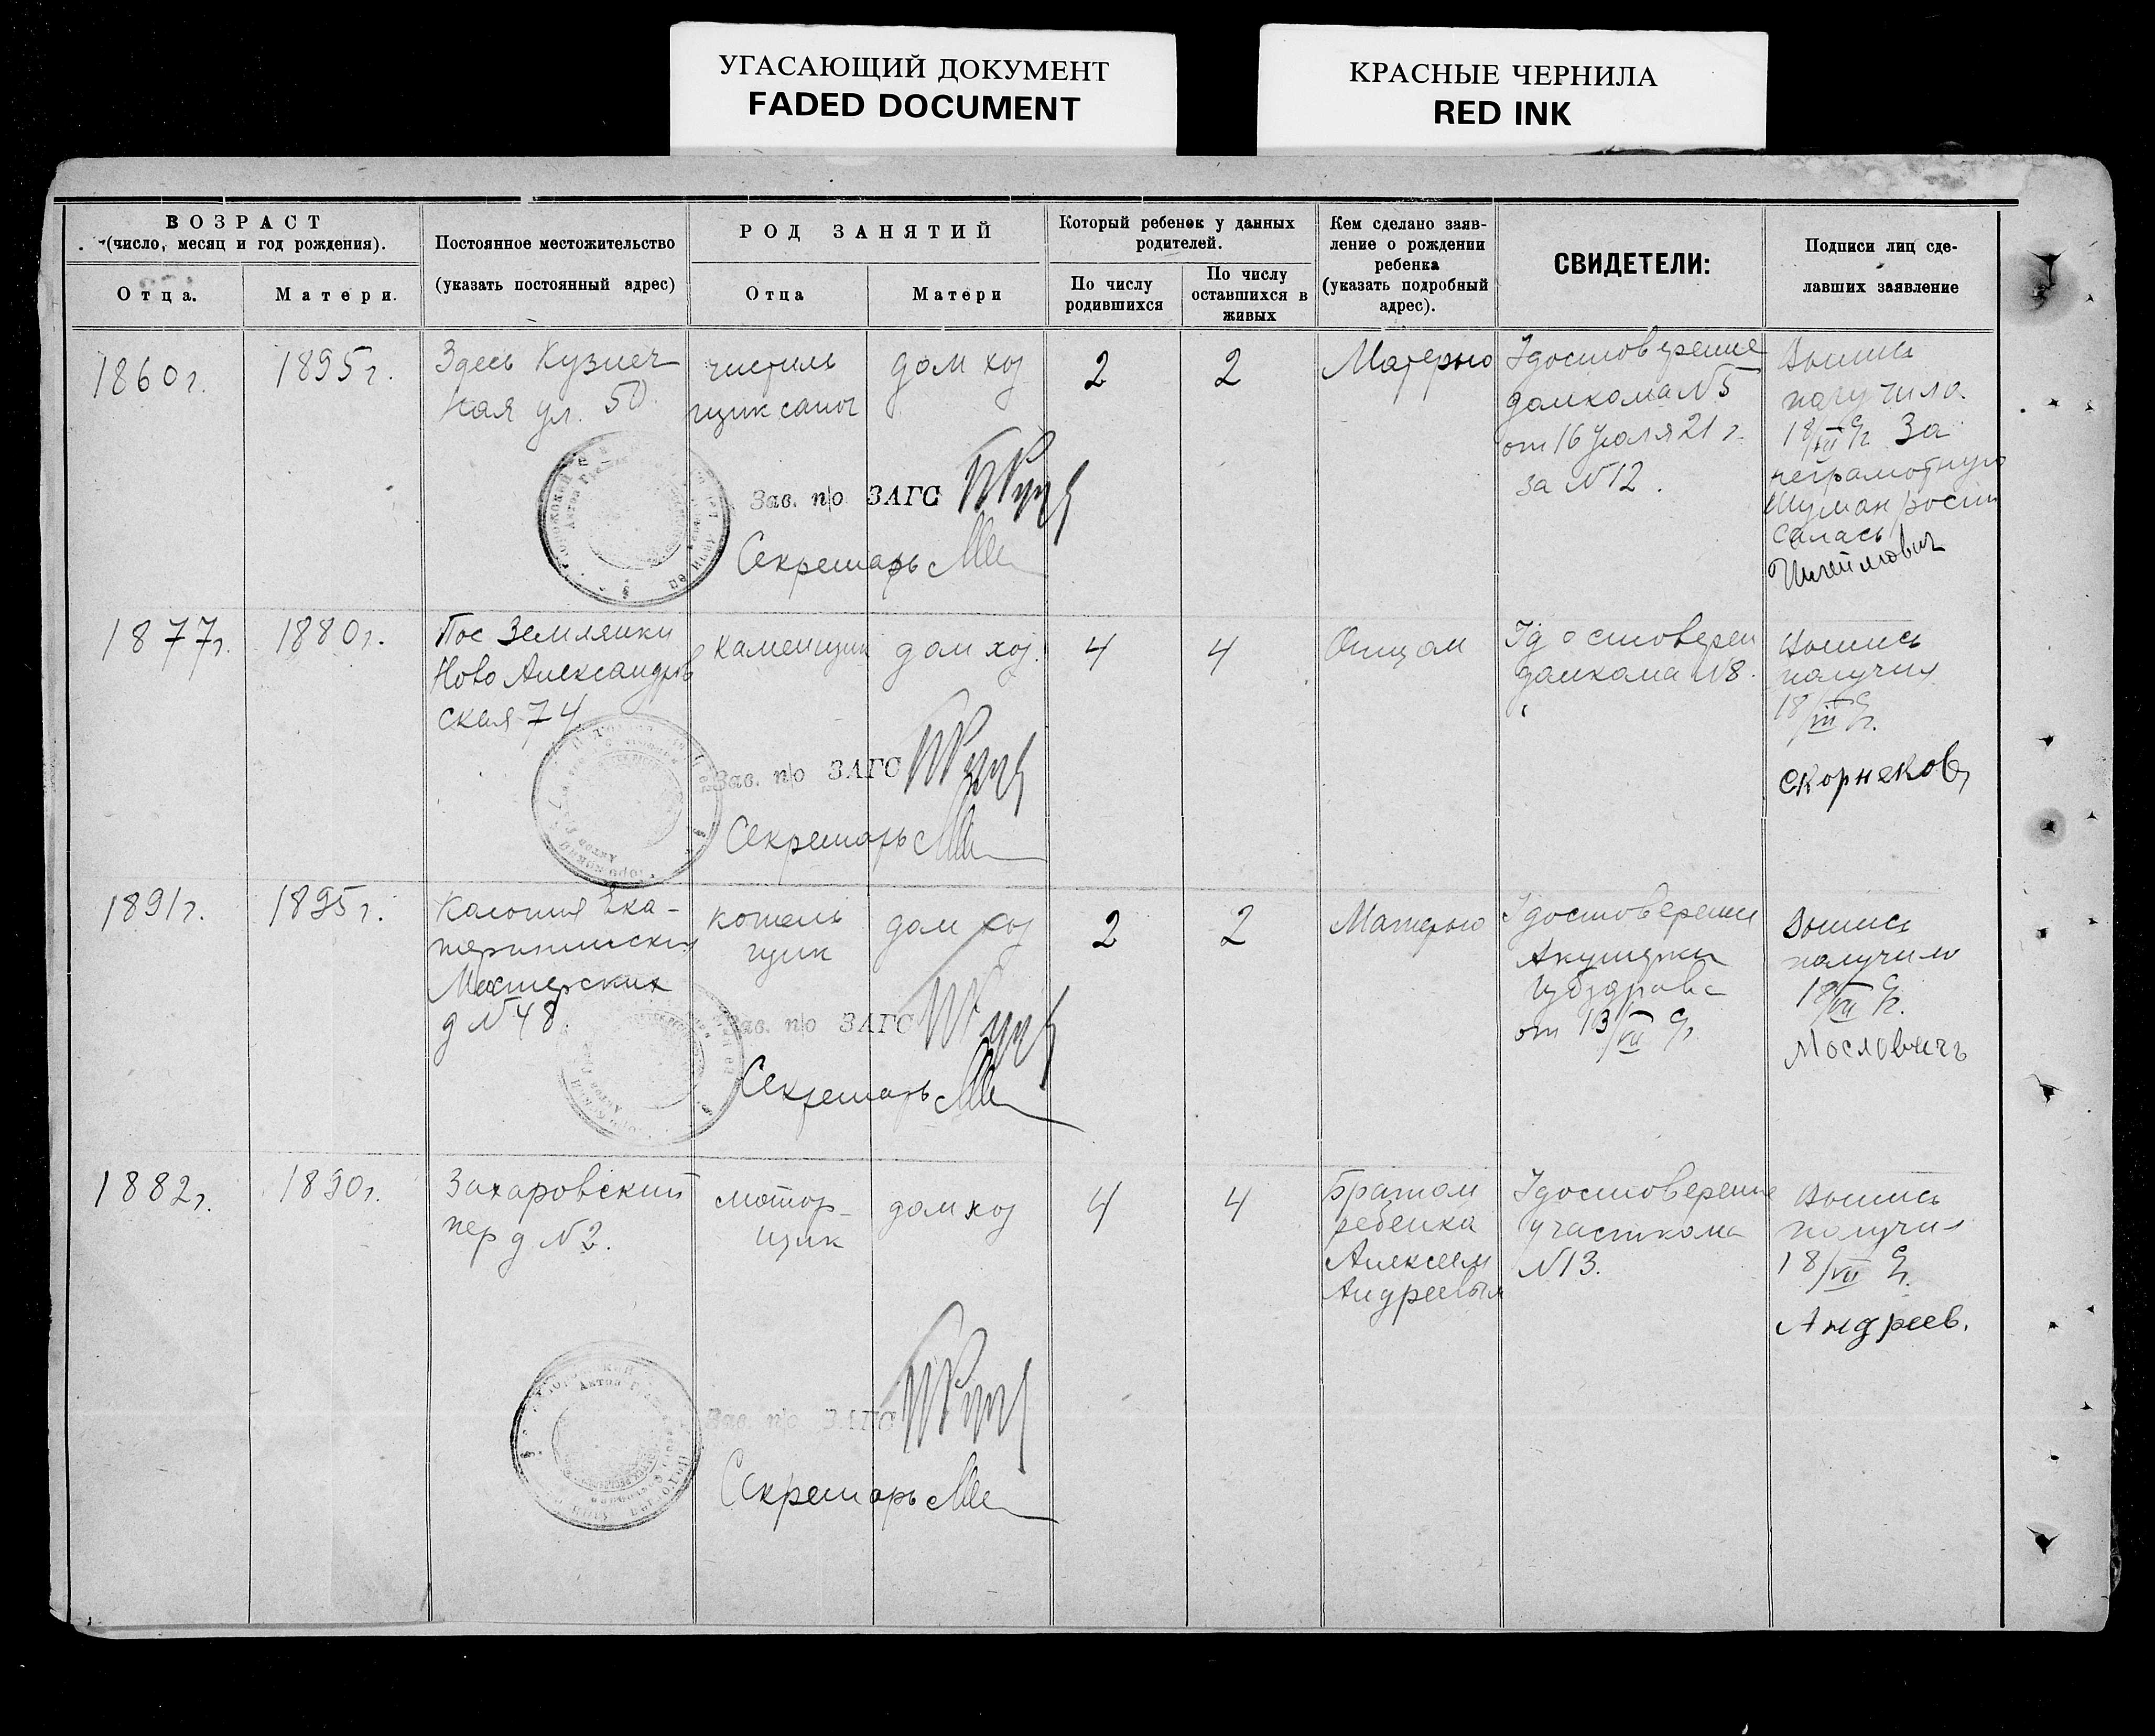 УГАСАЮЩИЙ ДОКУМЕНТ
FADED DOCUMENT
КРАСНЫЕ ЧЕРНИЛА
RED INK
ВОЗРАСТ
(число, месяц и год рождения).
Отца.
Матери.
Постоянное местожительство
(указать постоянный адрес)
РОД ЗАНЯТИЙ
Отца
Матери
Который ребенок у данных
родителей.
По числу
родившихся
По числу
оставшихся в
живых
Кем сделано заяв-
ление о рождении
ребенка
(указать подробный
адрес).
СВИДЕТЕЛИ:
Подписи лиц сде-
лавших заявление
1860г.
1895г.
Здесь Кузнеч
ная ул. 50.
чистиль
щик сапог
дом хоз
2
2
Матерью
Удостоверение
домкома N5
от 16 Июля 21 г.
за N12.
Выпись
получила.
18/VII За
неграмотную
Шуман роспи
салась
Зав. п/о ЗАГС
Секретарь
1877г.
1880г.
Пос Землянки
Ново Александров
ская 74
Каменщик
дом хоз.
4
4
Отцом
Удостоверен
домкома N8.
Выпись
получил
18/VII
Скорняков
Зав. п/о ЗАГС
Секретарь
1891г.
1895г.
Колония Ека-
терининских
Мастерских
д N48.
котель
щик
дом хоз
2
2
Матерью
Удостоверение
Акушерки
Губздрава
от 13/VII
Выпись
получила
18/VII
Мословичъ
Зав. п/о ЗАГС
Секретарь
1882г.
1890г.
Захаровский
пер д N2.
мотор-
щик
дом хоз
4
4
Братом
ребенка
Алексеем
Андреевым
Удостоверение
участкома
N13.
Выпись
получил
18/VII
Андреев.
Зав. п/о ЗАГС
Секретарь